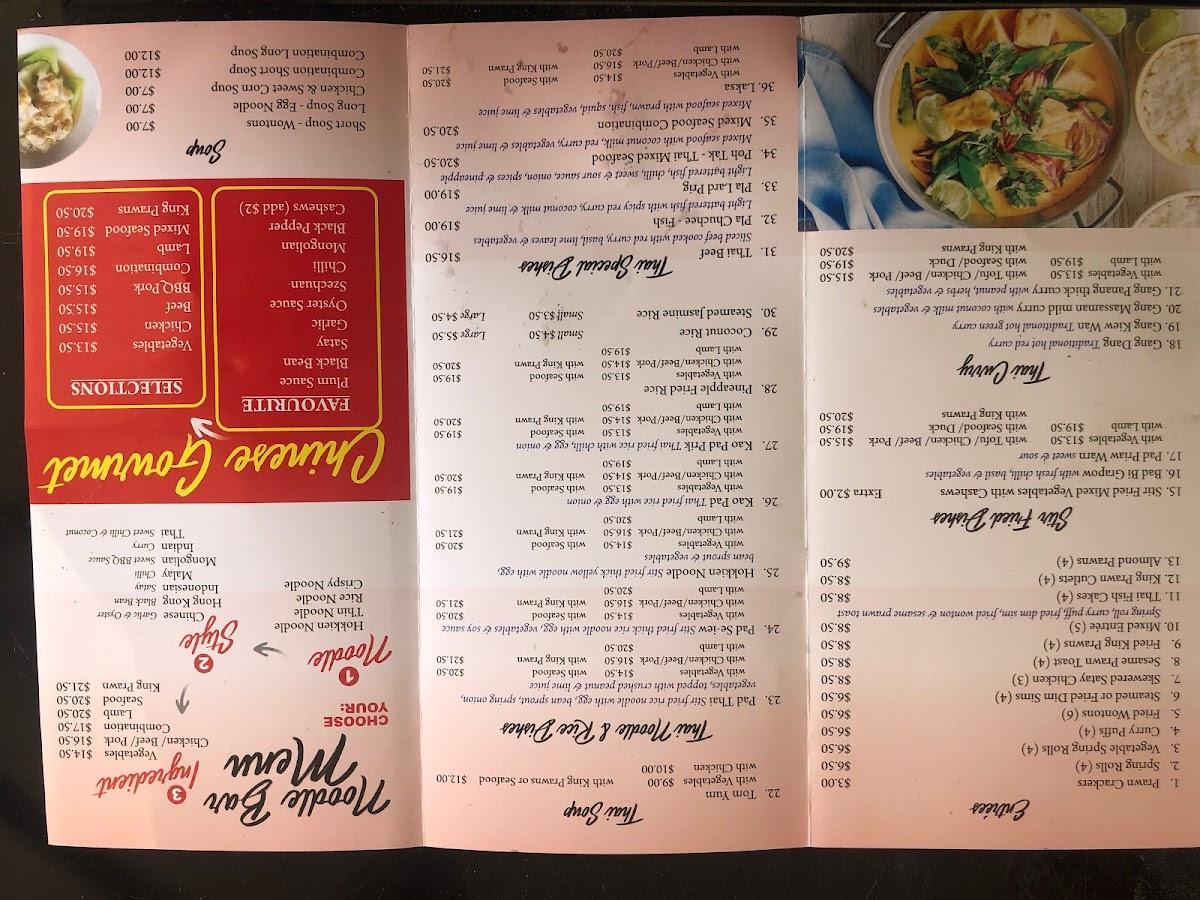 Entrées
1. Prawn Crackers $3.00
2. Spring Rolls (4) $6.50
3. Vegetable Spring Rolls (4) $6.50
4. Curry Puffs (4) $6.50
5. Fried Wontons (6) $6.50
6. Steamed or Fried Dim Sims (4) $6.50
7. Skewered Satay Chicken (3) $8.50
8. Sesame Prawn Toast (4) $8.50
9. Fried King Prawns (4) $8.50
10. Mixed Entrée (5) $8.50
Spring roll, curry puff, fried dim sim, fried wonton & sesame prawn toast
11. Thai Fish Cakes (4) $8.50
12. King Prawn Cutlets (4) $8.50
13. Almond Prawns (4) $9.50
Stir Fried Dishes
15. Stir Fried Mixed Vegetables with Cashews Extra $2.00
16. Bad Bi Grapow with fresh chilli, basil & vegetables
17. Pad Priaw Warn sweet & sour
with Vegetables $13.50 with Tofu/ Chicken/ Beef/ Pork $15.50
with Lamb $19.50 with Seafood/ Duck $19.50
with King Prawns $20.50
Thai Curry
18. Gang Dang Traditional red hot curry
19. Gang Kiew Wan Traditional hot green curry
20. Gang Massaman mild curry with coconut milk & vegetables
21. Gang Panang thick curry with peanut, herbs & vegetables
with Vegetables $13.50 with Tofu/ Chicken/ Beef/ Pork $15.50
with Lamb $19.50 with Seafood/ Duck $19.50
with King Prawns $20.50
Thai Soup
22. Tom Yum
with Vegetables $9.00 with King Prawns or Seafood $12.00
with Chicken $10.00
Thai Noodle & Rice Dishes
23. Thai Pad Stir fried rice noodle with egg, bean sprout, spring onion,
vegetables, topped with crushed peanut & lime juice
with Vegetables $14.50 with Seafood $20.50
with Chicken/Beef/Pork $16.50 with King Prawn $21.50
with Lamb $20.50
24. Pad Se-Iew Stir fried thick rice noodle with egg, vegetables & soy sauce
with Vegetables $14.50 with Seafood $20.50
with Chicken/Beef/Pork $16.50 with King Prawn $21.50
with Lamb $20.50
25. Hokkien Noodle Stir fried thick yellow noodle with egg,
bean sprout & vegetables
with Vegetables $14.50 with Seafood $20.50
with Chicken/Beef/Pork $16.50 with King Prawn $21.50
with Lamb $20.50
26. Kao Pad Thai fried rice with egg & onion
with Vegetables $13.50 with Seafood $19.50
with Chicken/Beef/Pork $14.50 with King Prawn $20.50
with Lamb $19.50
27. Kao Pad Prik Thai fried rice with chilli, egg & onion
with Vegetables $13.50 with Seafood $19.50
with Chicken/Beef/Pork $14.50 with King Prawn $20.50
with Lamb $19.50
28. Pineapple Fried Rice
with Vegetables $13.50 with Seafood $19.50
with Chicken/Beef/Pork $14.50 with King Prawn $20.50
with Lamb $19.50
29. Coconut Rice Small $4.50 Large $5.50
30. Steamed Jasmine Rice Small $3.50 Large $4.50
Thai Special Dishes
31. Thai Beef $16.50
Sliced beef cooked with red curry, basil, lime leaves & vegetables
32. Pla Chuchee - Fish $19.00
Light battered fish with spicy red curry, coconut milk & lime juice
33. Pla Lard Prig $19.00
Light battered fish, chilli, sweet & sour sauce, onion, spices & pineapple
34. Poh - Tak - Thai - Mixed Seafood $20.50
Mixed seafood with coconut milk, red curry, vegetables & lime juice
35. Mixed Seafood Combination $20.50
Mixed seafood with prawn, fish, squid, vegetables & lime juice
36. Laksa
with Vegetables $14.50 with Seafood $20.50
with Chicken/Beef/Pork $16.50 with King Prawn $21.50
with Lamb $20.50
Noodle Bar
Menu
CHOOSE
YOUR:
1 Noodle
Hokkien Noodle
Thin Noodle
Rice Noodle
Crispy Noodle
2 Style
Chinese Garlic & Oyster
Hong Kong Black Bean
Indonesian Satay
Malay Chilli
Mongolian Sweet BBQ Sauce
Indian Curry
Thai Sweet Chilli & Coconut
3 Ingredient
Vegetables $14.50
Chicken/ Beef/ Pork $16.50
Combination $17.50
Lamb $20.50
Seafood $20.50
King Prawn $21.50
Chinese Gourmet
FAVOURITE
Plum Sauce
Black Bean
Satay
Garlic
Oyster Sauce
Szechuan
Chilli
Mongolian
Black Pepper
Cashews (add $2)
SELECTIONS
Vegetables $13.50
Chicken $15.50
Beef $15.50
BBQ Pork $15.50
Combination $16.50
Lamb $19.50
Mixed Seafood $19.50
King Prawns $20.50
Soup
Short Soup - Wontons $7.00
Long Soup - Egg Noodle $7.00
Chicken & Sweet Corn Soup $7.00
Combination Short Soup $12.00
Combination Long Soup $12.00